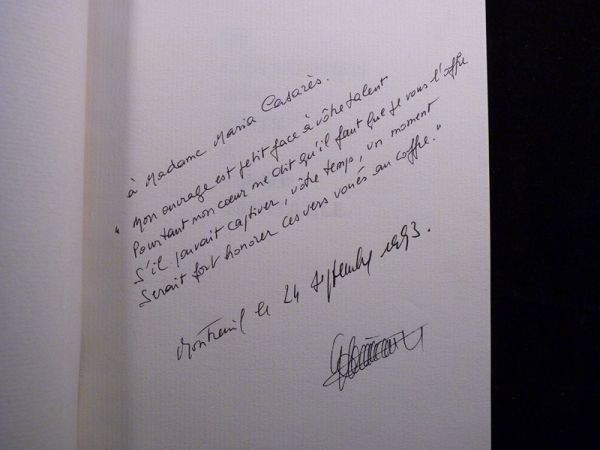 à Madame Maria Casarès.
" Mon ouvrage est petit face à vôtre talent
Pourtant mon cœur me dit qu'il faut que je vous l'offre
S'il pouvait captiver, vôtre temps, un moment
Serait fort honorer ces vers voués au coffre. "
Montreuil le 24 septembre 1993.